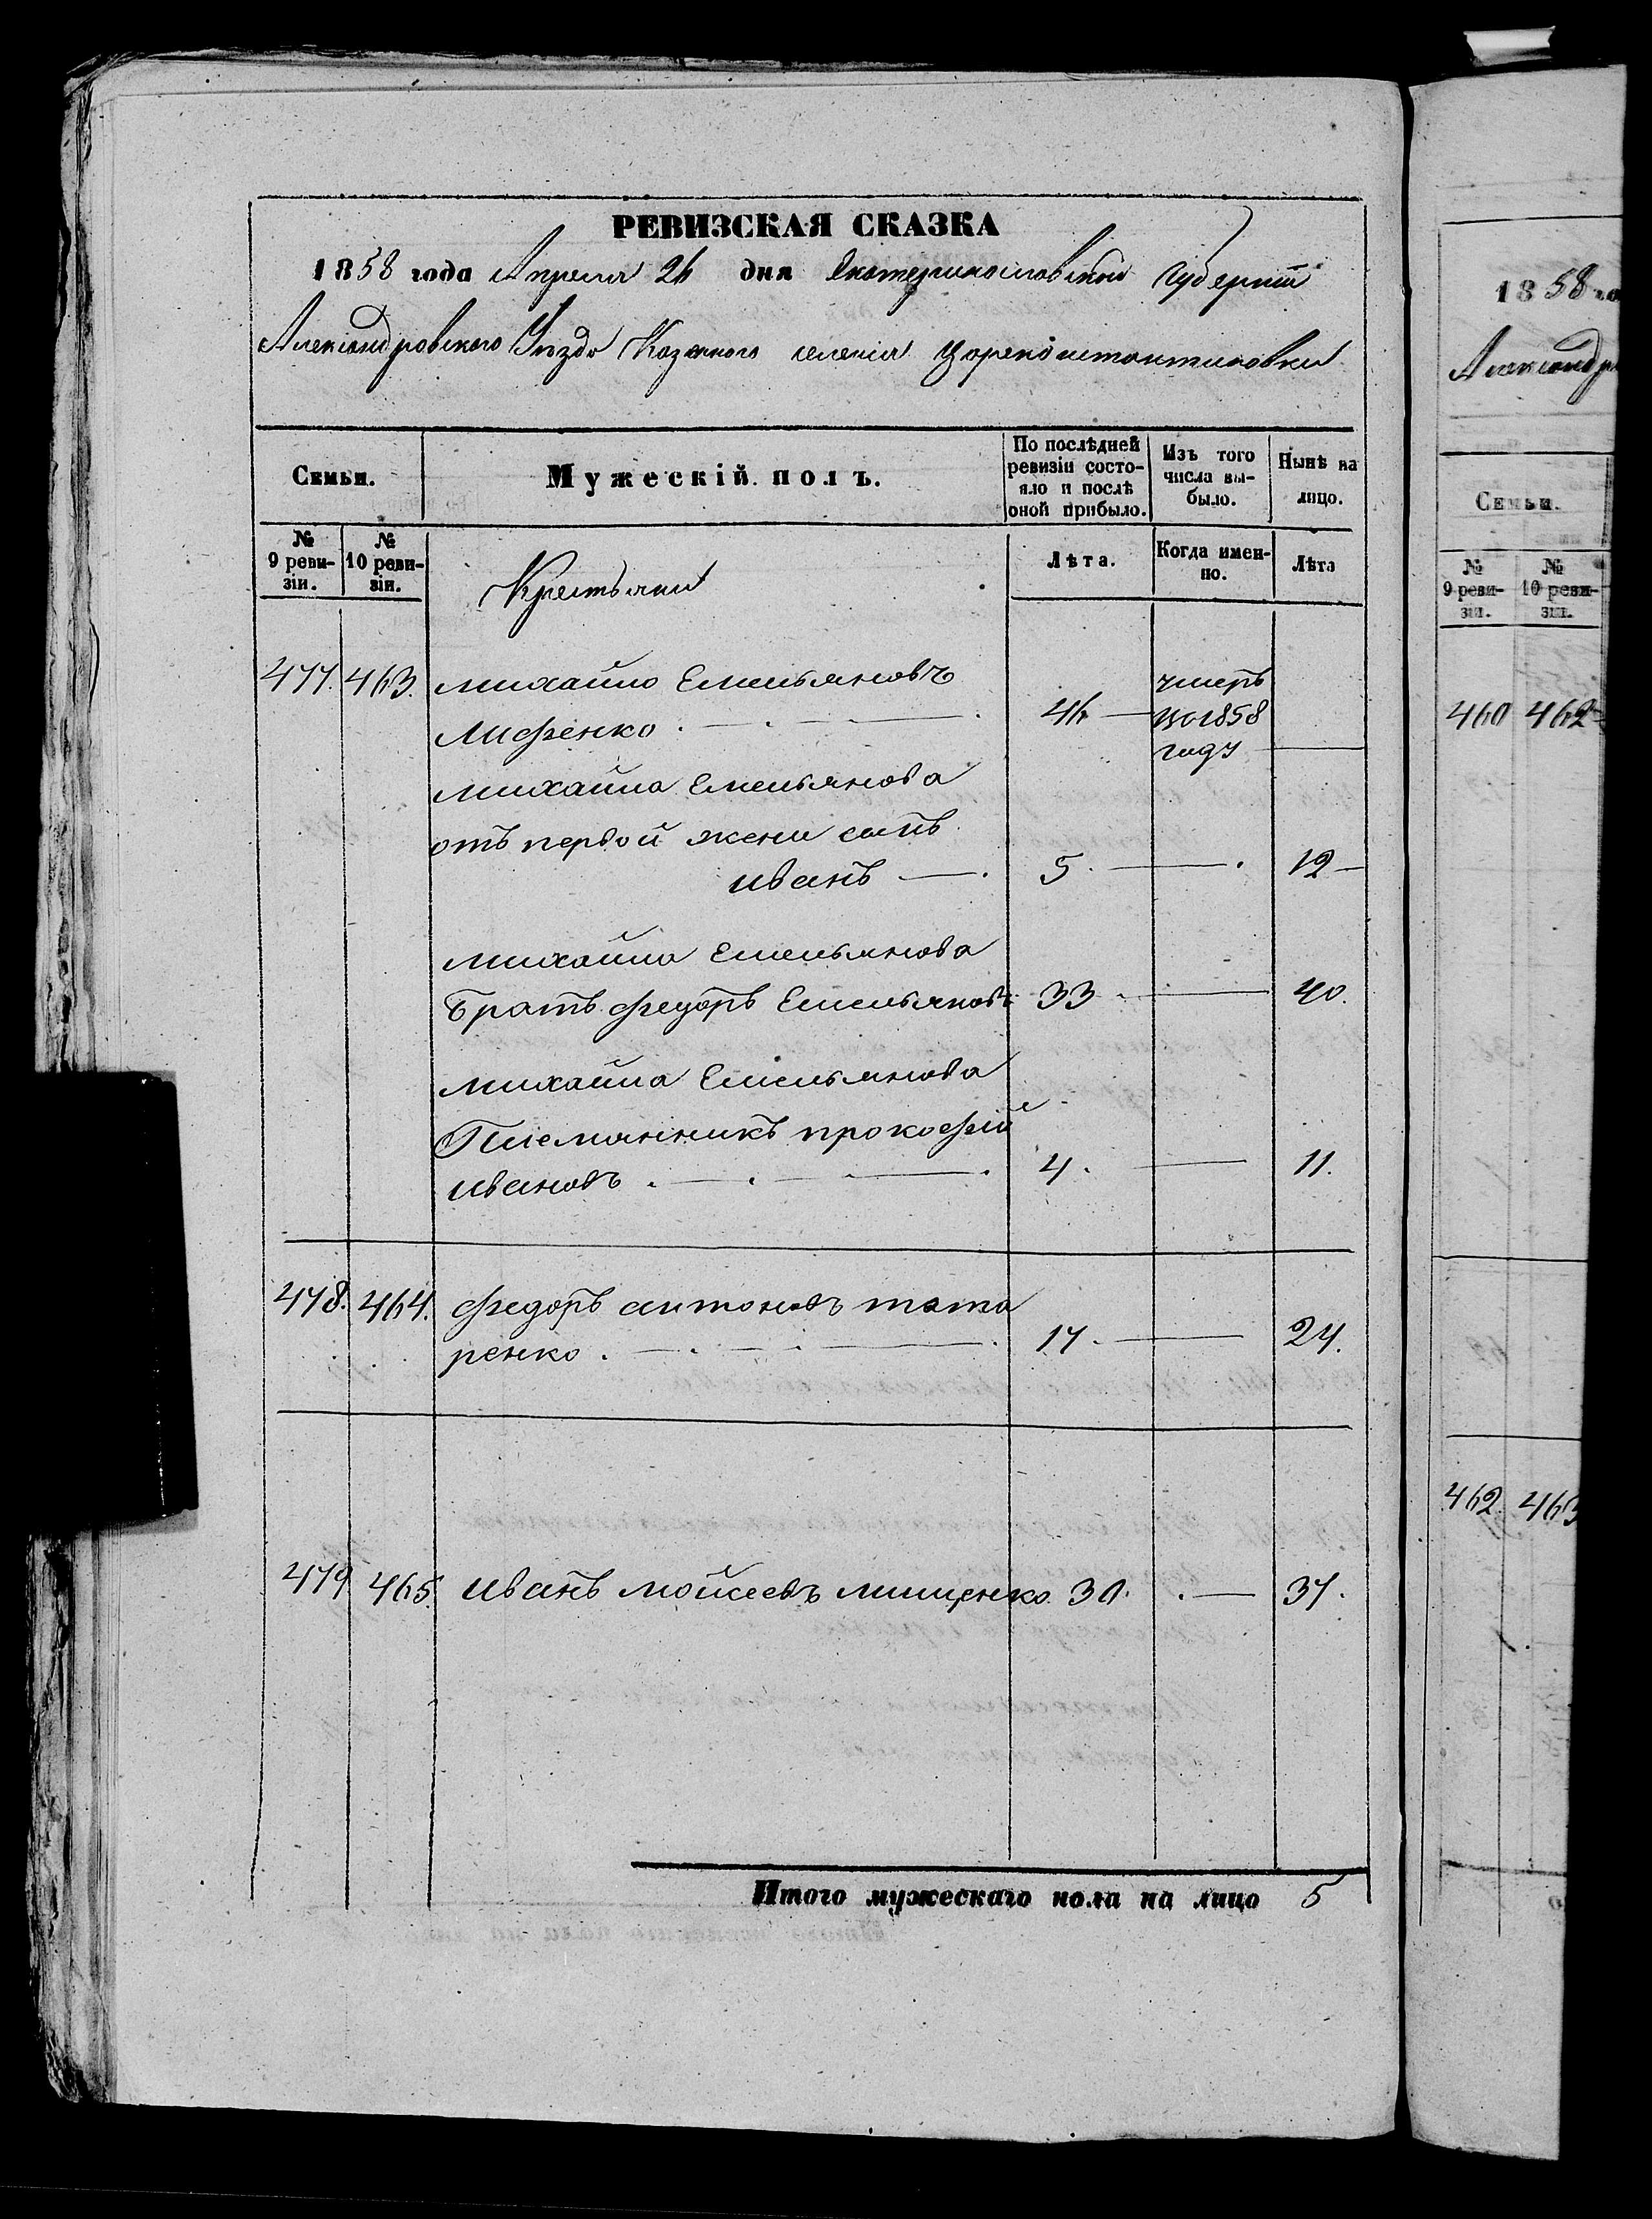 РЕВИЗСКАЯ СКАЗКА
1858 года Апреля 26 дня Екатеринославской Губернии
Александровского Уезда Казенного селения Цареконстантиновки
Семьи.
Мужескій полъ.
По послѣдней ревизіи состо-
яло и послѣ
оной прибыло.
Изъ того
числа вы-
было.
Нынѣ на
лицо.
№
9 реви-
зіи.
№
10 реви-
зіи.
Крестьяни
Лѣта.
Когда имен-
но.
Лѣта
477. 463. михайло Емельяновъ
Лисренко 46 умеръ
1858
году
михайла Емельянова
отъ первой жени сынъ
иванъ 5. 12
михайла Емельянова
братъ федоръ Емельяновъ 33 40.
михайла Емельянова
Племянникъ прокофий
ивановъ 4. 11.
478. 464. федоръ антоновъ тата
ренко 17. 24.
479 465. иванъ мойсеевъ мищенко 30. 37.
Итого мужескаго пола на лицо 5
1858 го
Александр
Семьи.
№
9 реви-
зіи.
№
10 реви-
зіи.
460 462
462. 463